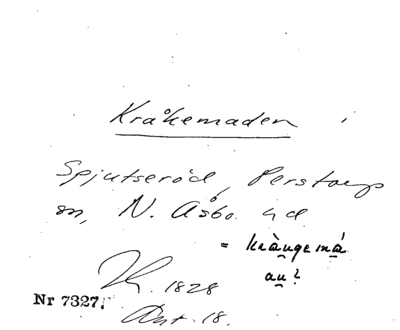 Kråkemaden i
Spjutseröd, Perstorps
sn, N. Åsbo hd
= kràṷgemá
aṷ?
1828
Nr 7327.
Ant. 18.